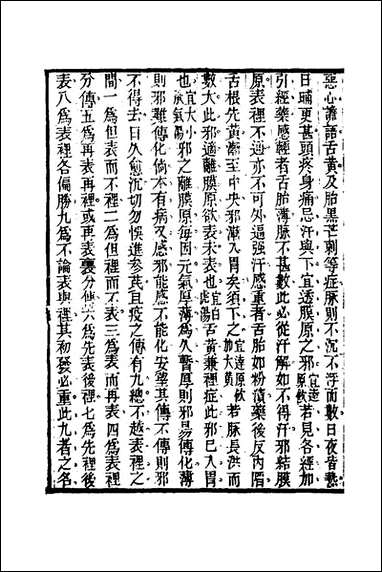 惡心譫語舌黃及胎黑芒刺等症脉則不沉不浮而數日夜皆熱
日晡更甚頭疼身痛忌汗與下宜透膜原之邪宜達原飲若見各經加
引經藥感輕者舌胎薄脉不甚數此必從汗解如不得汗邪結膜
原表裡不過亦不可外逼强汗感重者舌胎如粉漬藥後反内陷
舌根先黃漸至中央邪漸入胃矣須下之宜達原飲加大黃若脉長洪而
數大此邪適離膜原欲表未表也宜白虎湯舌黃兼裡症此邪已入胃
也宜大小承氣湯邪之離膜原每因元氣厚薄爲久暫厚則邪易傳化薄
則邪難傳化倘本有病又感邪能感不能化安望其傳不傳則邪
不得去日久愈沉切勿悞進參芪且疫之傳有九總不越表裡之
間一爲但表而不裡二爲但裡而不表三爲表而再表四爲表裡
分傳五爲再表再裡或再表裏分傳六爲先表後裡七爲先裡後
表八爲表裡各偏勝九爲不論表與裡其初發必重此九者之名